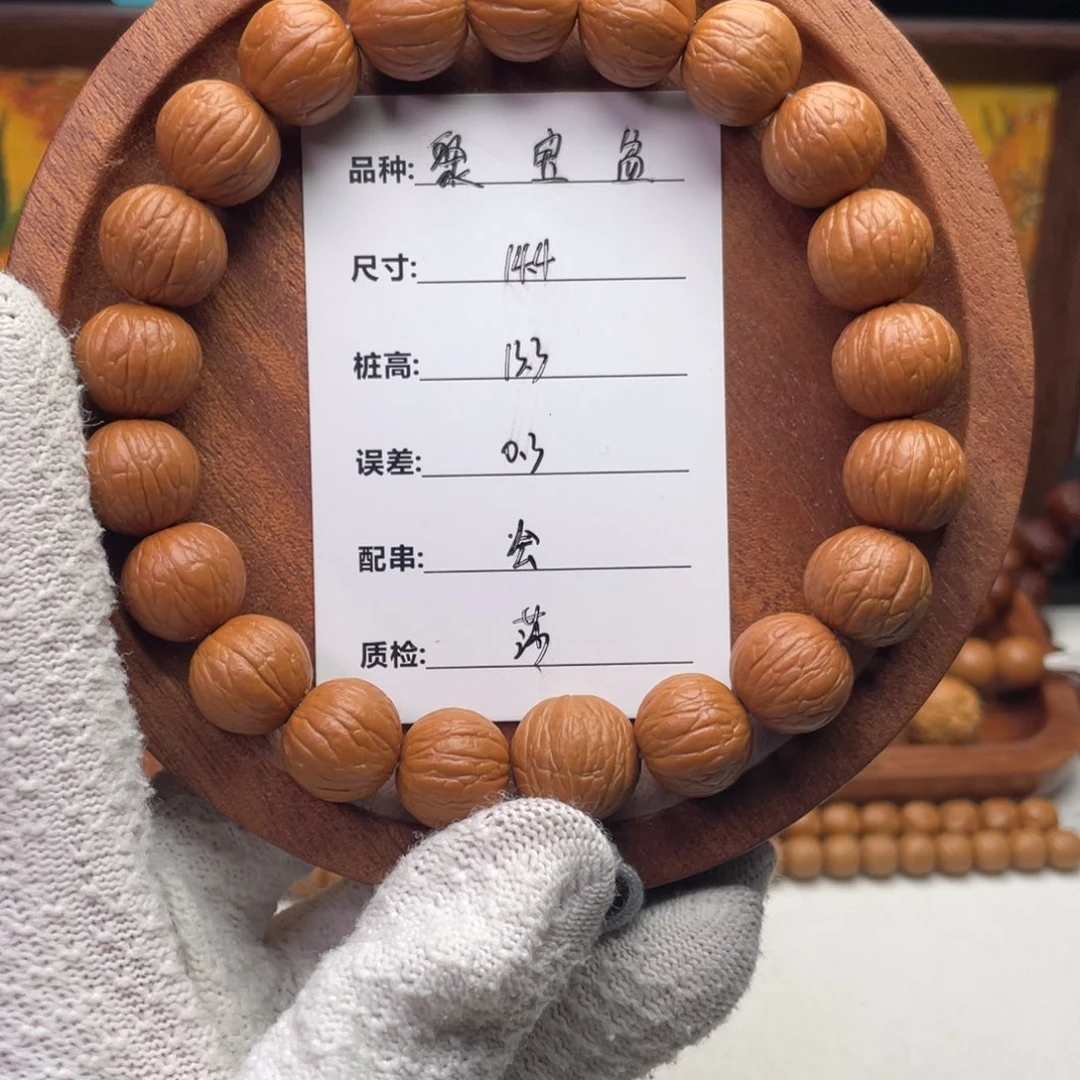 品种: 聚宝盆
尺寸: 14.4
桩高: 13.3
误差: 0.3
配串: 会
质检: